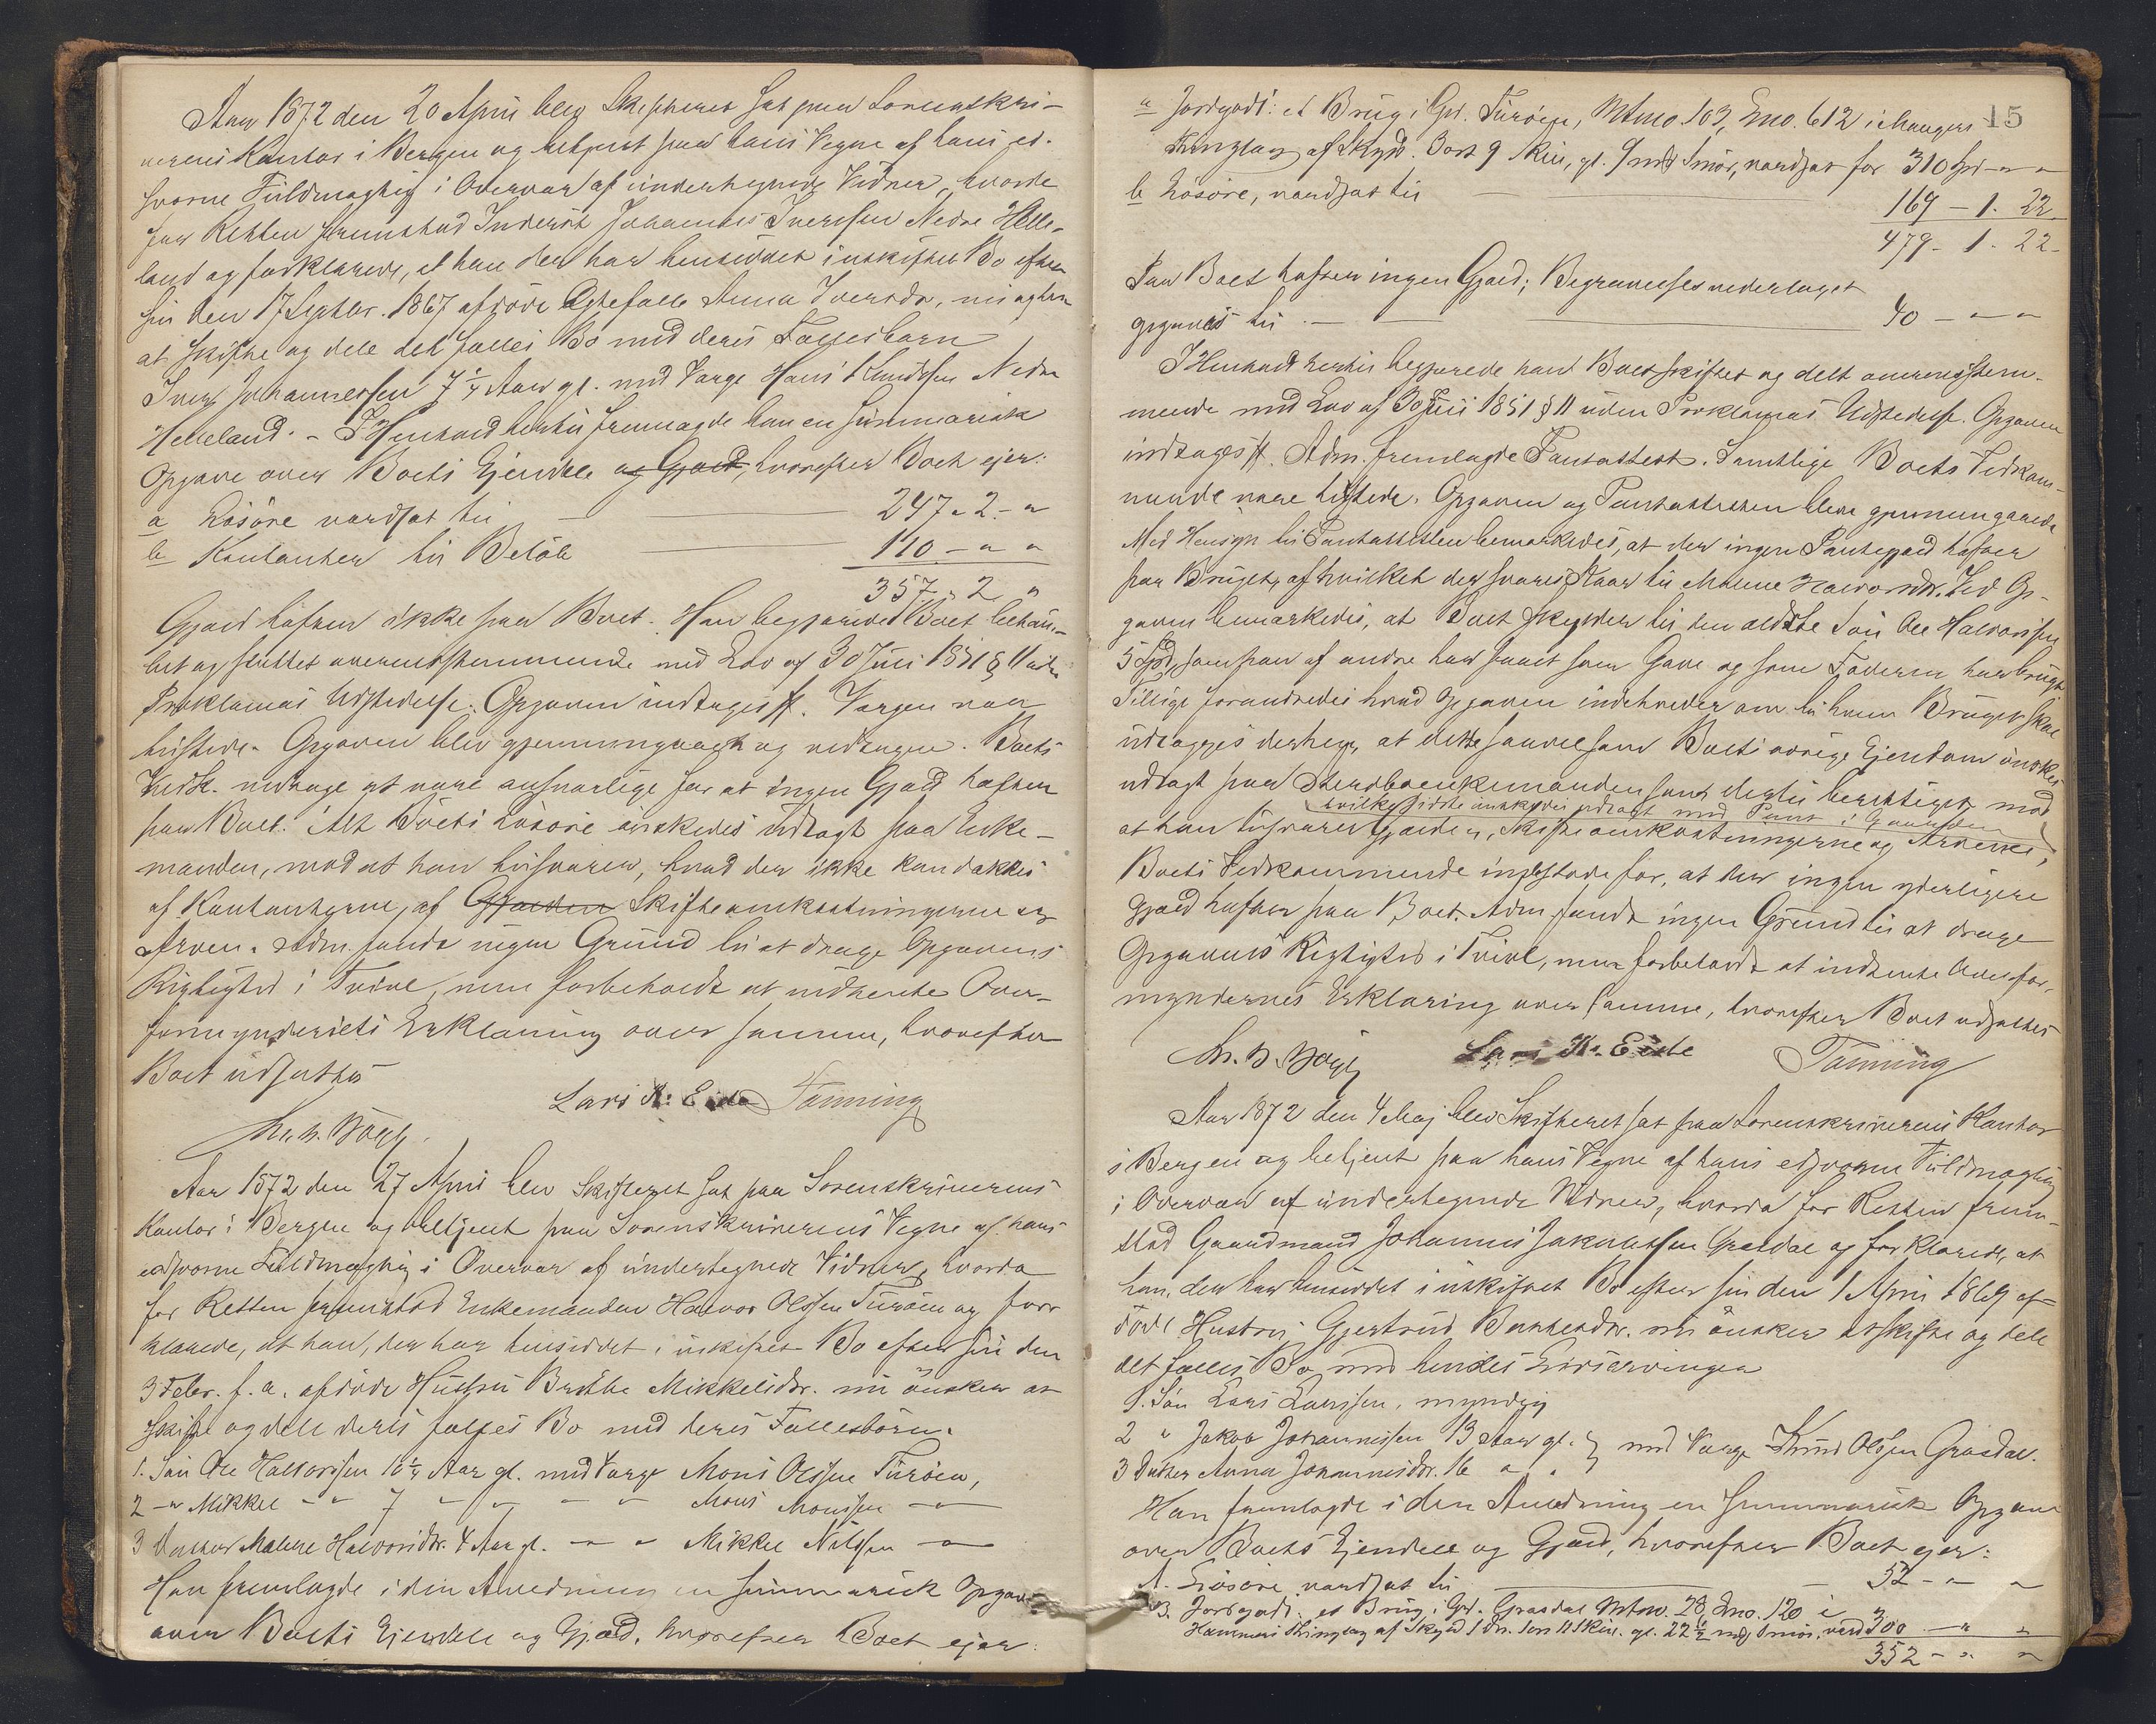 Aar 1872 den 20 April blev Skifteret sat paa Sorenskri-
verens Kontor i Bergen og betjent paa hans Vegne af hans ed-
svorne Fuldmægtig i Overvær af undertegnede Vidner, hvorda
for Retten fremstod Inderst Johannes Iversen Nedre Helle-
land og forklarede, at han der har hensiddet i uskiftet Bo efter
sin den 17 Septbr. 1867 afdøde Ægtefælle Anna Iversdr, nu agter
at skifte og dele det fælles Bo med deres Fællesbarn
Iver Johannessen 7 1/4 Aar gl. med Værge Hans Knudsen Nedre
Helleland. - I Henhold hertil fremlagde han en summarisk
Opgave over Boets Ejendele og Gjæld, hvorefter Boet ejer:
a Løsøre værdsat til 247 " 2 - "
b Kontanter til Beløb 110 - " "
357 " 2 "
Gjæld hæfter ikke paa Boet. Han begjærede Boet behand-
let og sluttet overensstemmende med Lov af 30 Juni 1851 § 11 uden
Proklamas Udstedelse. Opgaven indtages ff. Værgen var
tilstede. Opgaven blev gjennemgaaet og vedtagen. Boets
Vedk. vedtage at være ansvarlige for at ingen Gjæld hæfter
paa Boet. Alt Boets Løsøre ønskedes udlagt paa Enke-
manden, mod at han tilsvarer, hvad der ikke kan dækkes
af Kontanterne, af Gjælden Skifteomkostningerne og
Arven. Adm. fandt ingen Grund til at drage Opgavens
Rigtighed i Tvivl, men forbeholdt at indhente Over-
formynderiets Erklæring over samme, hvorefter
Boet udsattes
Lars K. Eide Tanning
Chr. B. Vogt
Aar 1872 den 27 April blev Skifteret sat paa Sorenskriverens
Kontor i Bergen og betjent paa Sorenskriverens Vegne af hans
edsvorne Fuldmægtig i Overvær af undertegnede Vidner, hvorda
for Retten fremstod Enkemanden Halvor Olsen Turøen og for-
klarede, at han, der har hensiddet i uskiftet Bo efter sin den
3 Febr. f. a. afdøde Hustru Brithe Mikkelsdr. nu ønsker at
skifte og dele deres fælles Bo med deres Fællesbørn.
1. Søn Ole Halvorsen 10 1/2 Aar gl. med Værge Mons Olsen Turøen,
2 - " Mikkel - " 7 - " - " - " Mons Monssen - " -
3 Datter Malene Halvorsdr. 4 Aar gl. - " " Mikkel Nilsen - " -
Han fremlagde i den Anledning en summarisk Opgave
over Boets Ejendele og Gjæld, hvorefter Boet ejer:
15
a Jordgods: et Brug i Grd. Turøen, Mtrno. 103, Lno. 612 i Mangers
Thinglag af Skyld. 3 ort 9 Skil, gl. 9 mrk Smør, værdsat for 310 Spd - " "
b Løsøre, værdsat til 169 - 1. 22
479 - 1. 22 -
Paa Boet hæfter ingen Gjæld; Begravelsesvederlaget
opgaves til - 40 - " "
I Henhold hertil begjærede han Boet skiftet og delt overensstem-
mende med Lov af 30 Juni 1851 § 11 uden Proklamas Udstedelse. Opgaven
indtages ff. Adm. fremlagde Panteattest. Samtlige Boets Vedkom-
mende vare tilstede. Opgaven og Panteattesten bleve gjennemgaaede
Med Hensyn til Panteattesten bemærkedes, at der ingen Pantegjæld hæfter
paa Bruget, af hvilket der svares Kaar til Malene Halvorsdr. Ved Op-
gaven bemærkedes, at Boet skylder til den ældste Søn Ole Halvorsen
5 Spd, som han af andre har faaet som Gave og som Faderen har brugt
Tillige forandredes hvad Opgaven indeholder om til hvem Bruget skal
udlægges derhen, at dette saavelsom Boets øvrige Ejendom ønskes
udlagt paa Sterboenkemanden som dertil berettiget mod,
hvilke sidste ønskedes udlagt med Pant i Gaarden
at han tilsvarer Gjælden, Skifteomkostningerne og Arvene,
Boets Vedkommende indestode for, at der ingen yderligere
Gjæld hæfter paa Boet. Adm. fandt ingen Grund til at drage
Opgavens Rigtighed i Tvivl, men forbeholdt at indhente Overfor-
myndernes Erklæring over samme, hvorefter Boet udsattes
Chr. B. Vogt Lars K. Eide Tanning
Aar 1872 den 4 Maj blev Skifteret sat paa Sorenskriverens Kontor
i Bergen og betjent paa hans Vegne af hans edsvorne Fuldmægtig
i Overvær af undertegnede Vidner, hvorda for Retten frem-
stod Gaardmand Johannes Jakobsen Grasdal og forklarede, at
han, der har hensiddet i uskiftet Bo efter sin den 1 April 1869 af-
døde Hustru Gjertrud Bentsdr. nu ønsker at skifte og dele
det fælles Bo med hendes Livsarvinger
1. Søn Lars Larssen, myndig
2 " Jakob Johannessen 13 Aar gl. } med Værge Knud Olsen Grasdal.
3 Datter Anna Johannesdr. 16 " "
Han fremlagde i den Anledning en summarisk Opgave
over Boets Ejendele og Gjæld, hvorefter Boet ejer:
A. Løsøre værdsat til 52 - " "
B. Jordgods: et Brug i Grd. Grasdal Mtrno. 28, Lno. 120 i
Hammers Thinglag af Skyld 1 Dlr. 1 ort 11 Skil. gl. 22 1/2 mrk Smør, værd 300 - " "
352 - " "